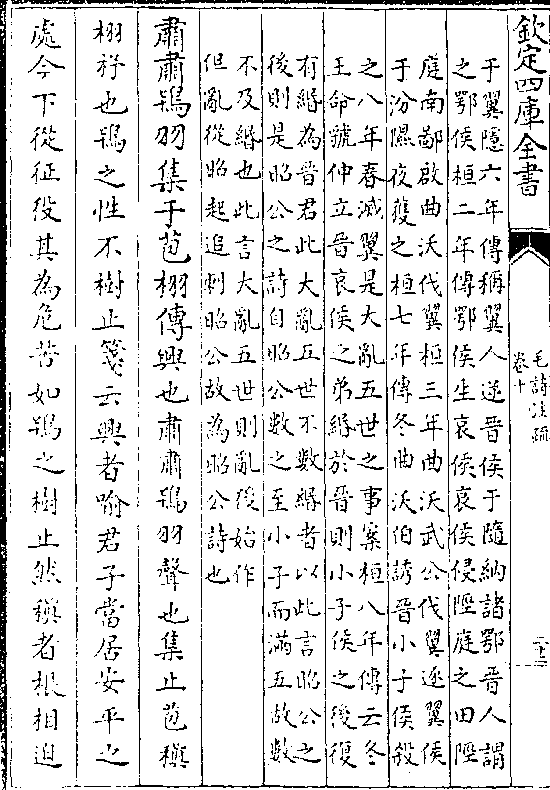 欽定四庫全書
毛詩注疏
卷十
于翼隱六年傳稱翼人逆晉侯于隨納諸鄂晉人謂
之鄂侯桓二年傳鄂侯生哀侯哀侯侵陘庭之田陘
庭南鄙啟曲沃伐翼桓三年曲沃武公伐翼逐翼侯
于汾隰夜獲之桓七年傳冬曲沃伯誘晉小子侯殺
之八年春滅翼是大亂五世之事案桓八年傳云冬
王命虢仲立晉哀侯之弟緡於晉則小子侯之後復
有緡為晉君此大亂五世不數緡者以此言昭公之
後則是昭公之詩自昭公數之至小子而滿五故數
不及緡也此言大亂五世則亂後始作
但亂從昭起追刺昭公故為昭公詩也
肅肅鴇羽集于苞栩傳興也肅肅鴇羽聲也集止苞稹
栩杼也鴇之性不樹止箋云興者喻君子當居安平之
處今下從征役其為危苦如鴇之樹止然稹者根相迫